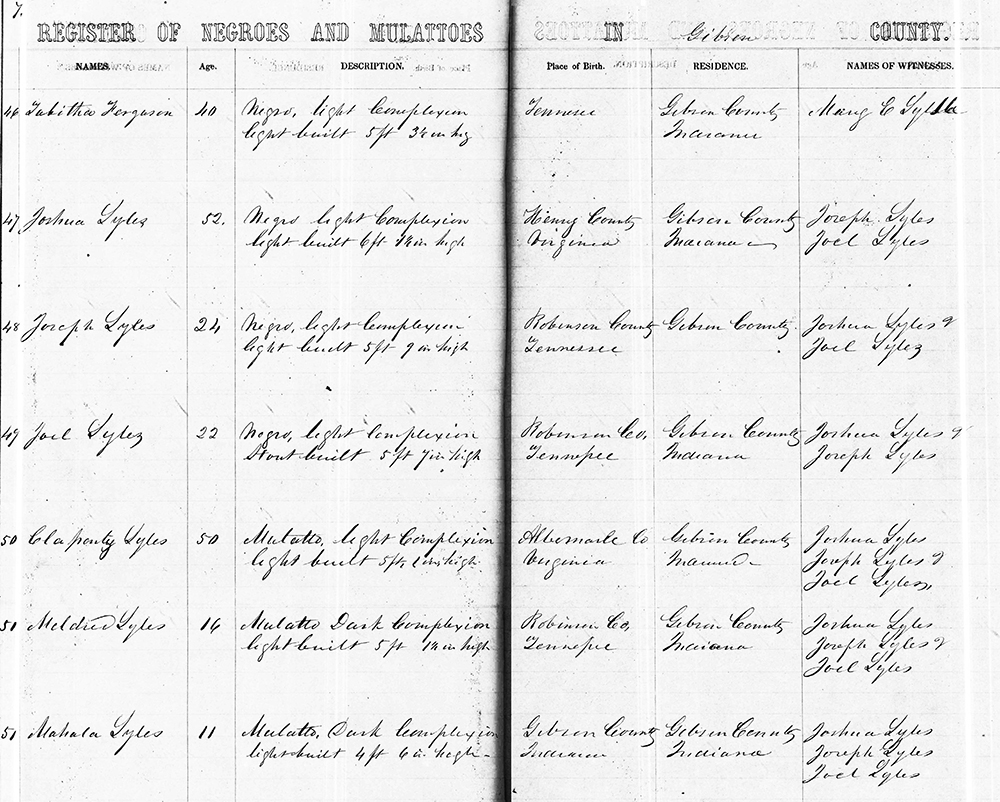 7.
REGISTER OF NEGROES AND MULATTOES IN Gibson COUNTY.
NAMES. Age. DESCRIPTION. Place of Birth. RESIDENCE. NAMES OF WITNESSES.
46 Tabitha Ferguson 40 Negro, light Complexion Tennessee Gibson County Mary E Lyles
light built 5 ft high Indiana
47 Joshua Lyles 52. Negro light Complexion Henry County Gibson County Joseph Lyles
light built 6 ft high Virginia Indiana Joel Lyles
48 Joseph Lyles 24 Negro, light Complexion Robinson County Gibson County Joshua Lyles &
light built 5 ft 9 in high Tennessee Joel Lyles
49 Joel Lyles 22 Negro, light Complexion Robinson Co. Gibson County Joshua Lyles &
Stout built 5 ft 7 in high Tennessee Indiana Joseph Lyles
50 Lyles 50 Mulatto, light Complexion Albemarle Co Gibson County Joshua Lyles
light built 5 ft high Virginia Indiana Joseph Lyles &
Joel Lyles
51 Meldred Lyles 16 Mulatto Dark Complexion Robinson Co. Gibson County Joshua Lyles
light built 5 ft high Tennessee Indiana Joseph Lyles &
Joel Lyles
51 Mahala Lyles 11 Mulatto, Dark Complexion Gibson County Gibson County Joshua Lyles
light built 4 ft 6 in high Indiana Indiana Joseph Lyles
Joel Lyles